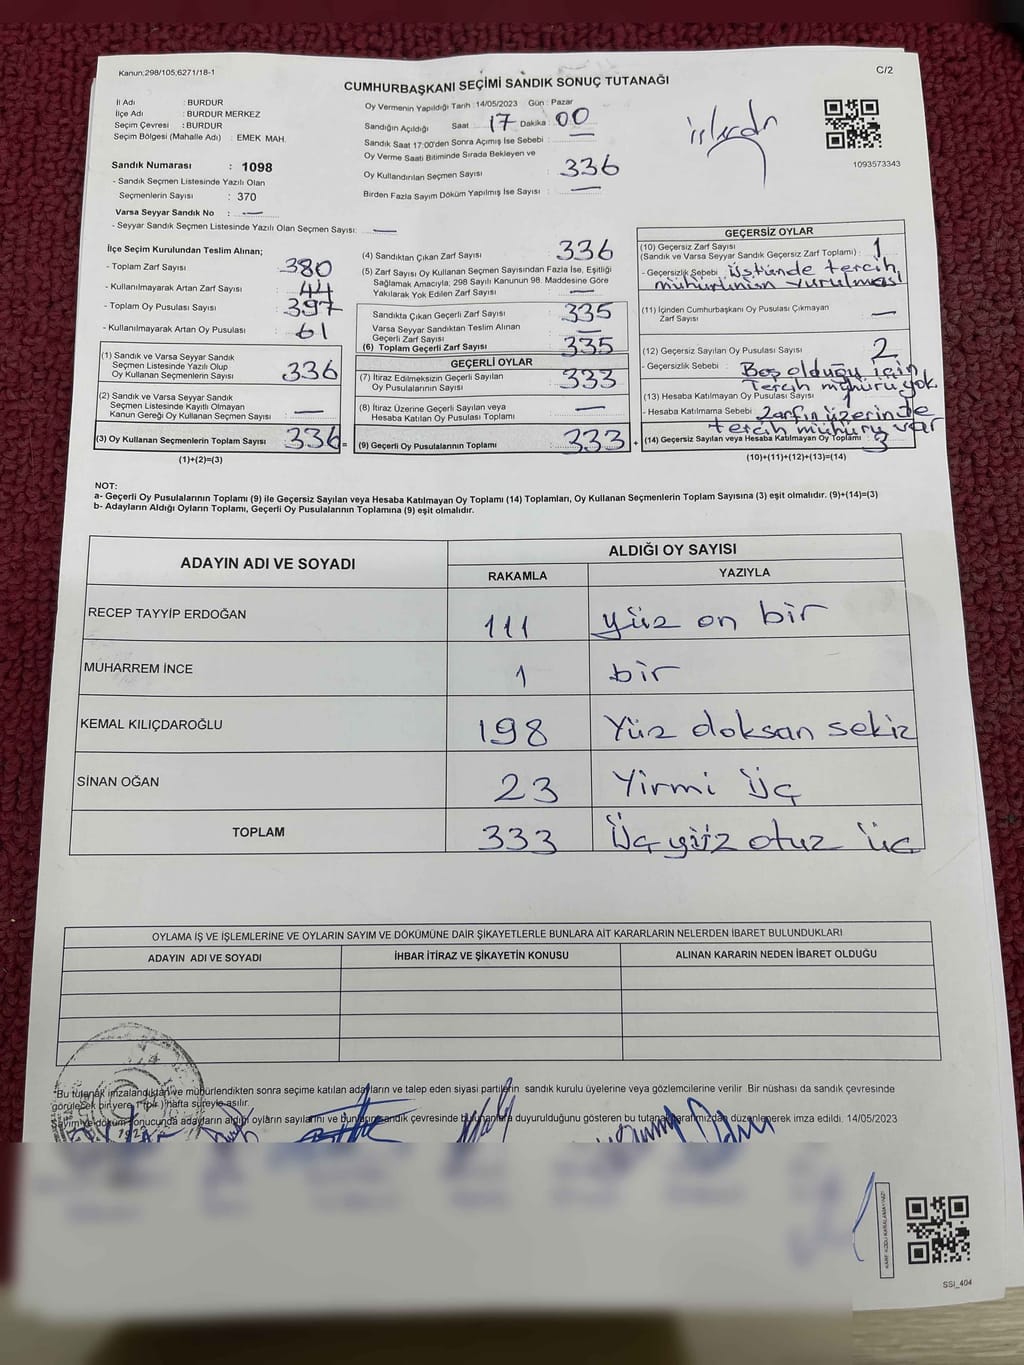 Kanun;298/105,6271/18-1
C/2
CUMHURBAŞKANI SEÇİMİ SANDIK SONUÇ TUTANAĞI
İl Adı : BURDUR
İlçe Adı : BURDUR MERKEZ
Seçim Çevresi : BURDUR
Seçim Bölgesi (Mahalle Adı) : EMEK MAH.
Sandık Numarası : 1098
- Sandık Seçmen Listesinde Yazılı Olan
Seçmenlerin Sayısı : 370
Varsa Seyyar Sandık No : —
- Seyyar Sandık Seçmen Listesinde Yazılı Olan Seçmen Sayısı: —
Oy Vermenin Yapıldığı Tarih : 14/05/2023 Gün : Pazar
Sandığın Açıldığı Saat : 17 Dakika : 00
Sandık Saat 17:00'den Sonra Açımış İse Sebebi : —
Oy Verme Saati Bitiminde Sırada Bekleyen ve
Oy Kullandırılan Seçmen Sayısı : 336
Birden Fazla Sayım Döküm Yapılmış İse Sayısı : —
1093573343
İlçe Seçim Kurulundan Teslim Alınan;
- Toplam Zarf Sayısı : 380
- Kullanılmayarak Artan Zarf Sayısı : 44
- Toplam Oy Pusulası Sayısı : 397
- Kullanılmayarak Artan Oy Pusulası : 61
(1) Sandık ve Varsa Seyyar Sandık
Seçmen Listesinde Yazılı Olup
Oy Kullanan Seçmenlerin Sayısı : 336
(2) Sandık ve Varsa Seyyar Sandık
Seçmen Listesinde Kayıtlı Olmayan
Kanun Gereği Oy Kullanan Seçmen Sayısı : —
(3) Oy Kullanan Seçmenlerin Toplam Sayısı : 336 =
(1)+(2)=(3)
(4) Sandıktan Çıkan Zarf Sayısı : 336
(5) Zarf Sayısı Oy Kullanan Seçmen Sayısından Fazla İse, Eşitliği
Sağlamak Amacıyla; 298 Sayılı Kanunun 98. Maddesine Göre
Yakılarak Yok Edilen Zarf Sayısı : —
Sandıkta Çıkan Geçerli Zarf Sayısı : 335
Varsa Seyyar Sandıktan Teslim Alınan
Geçerli Zarf Sayısı : —
(6) Toplam Geçerli Zarf Sayısı : 335
GEÇERLİ OYLAR
(7) İtiraz Edilmeksizin Geçerli Sayılan
Oy Pusulalarının Sayısı : 333
(8) İtiraz Üzerine Geçerli Sayılan veya
Hesaba Katılan Oy Pusulası Toplamı : —
(9) Geçerli Oy Pusulalarının Toplamı : 333 +
GEÇERSİZ OYLAR
(10) Geçersiz Zarf Sayısı : 1
(Sandık ve Varsa Seyyar Sandık Geçersiz Zarf Toplamı) :
- Geçersizlik Sebebi : Üstünde tercih
mühürünün vurulması
(11) İçinden Cumhurbaşkanı Oy Pusulası Çıkmayan
Zarf Sayısı : —
(12) Geçersiz Sayılan Oy Pusulası Sayısı : 2
- Geçersizlik Sebebi : Boş olduğu için
Tercih mühürü yok
(13) Hesaba Katılmayan Oy Pusulası Sayısı :
- Hesaba Katılmama Sebebi : Zarfın üzerinde
tercih mühürü var
(14) Geçersiz Sayılan veya Hesaba Katılmayan Oy Toplamı : 3
(10)+(11)+(12)+(13)=(14)
NOT:
a- Geçerli Oy Pusulalarının Toplamı (9) ile Geçersiz Sayılan veya Hesaba Katılmayan Oy Toplamı (14) Toplamları, Oy Kullanan Seçmenlerin Toplam Sayısına (3) eşit olmalıdır. (9)+(14)=(3)
b- Adayların Aldığı Oyların Toplamı, Geçerli Oy Pusulalarının Toplamına (9) eşit olmalıdır.
ADAYIN ADI VE SOYADI
ALDIĞI OY SAYISI
RAKAMLA YAZIYLA
RECEP TAYYİP ERDOĞAN 111 yüz on bir
MUHARREM İNCE 1 bir
KEMAL KILIÇDAROĞLU 198 Yüz doksan sekiz
SİNAN OĞAN 23 Yirmi üç
TOPLAM 333 Üç yüz otuz üç
OYLAMA İŞ VE İŞLEMLERİNE VE OYLARIN SAYIM VE DÖKÜMÜNE DAİR ŞİKAYETLERLE BUNLARA AİT KARARLARIN NELERDEN İBARET BULUNDUKLARI
ADAYIN ADI VE SOYADI İHBAR İTİRAZ VE ŞİKAYETİN KONUSU ALINAN KARARIN NEDEN İBARET OLDUĞU
"Bu tutanak imzalandıktan ve mühürlendikten sonra seçime katılan adayların ve talep eden siyasi partilerin sandık kurulu üyelerine veya gözlemcilerine verilir. Bir nüshası da sandık çevresinde
görülecek bir yere 1 (bir) hafta süreyle asılır.
Sayım ve döküm sonucunda adayların aldığı oyların sayılarını ve bunların sandık çevresinde bulunanlara duyurulduğunu gösteren bu tutanak tarafımızdan düzenlenerek imza edildi. 14/05/2023
SSI_404